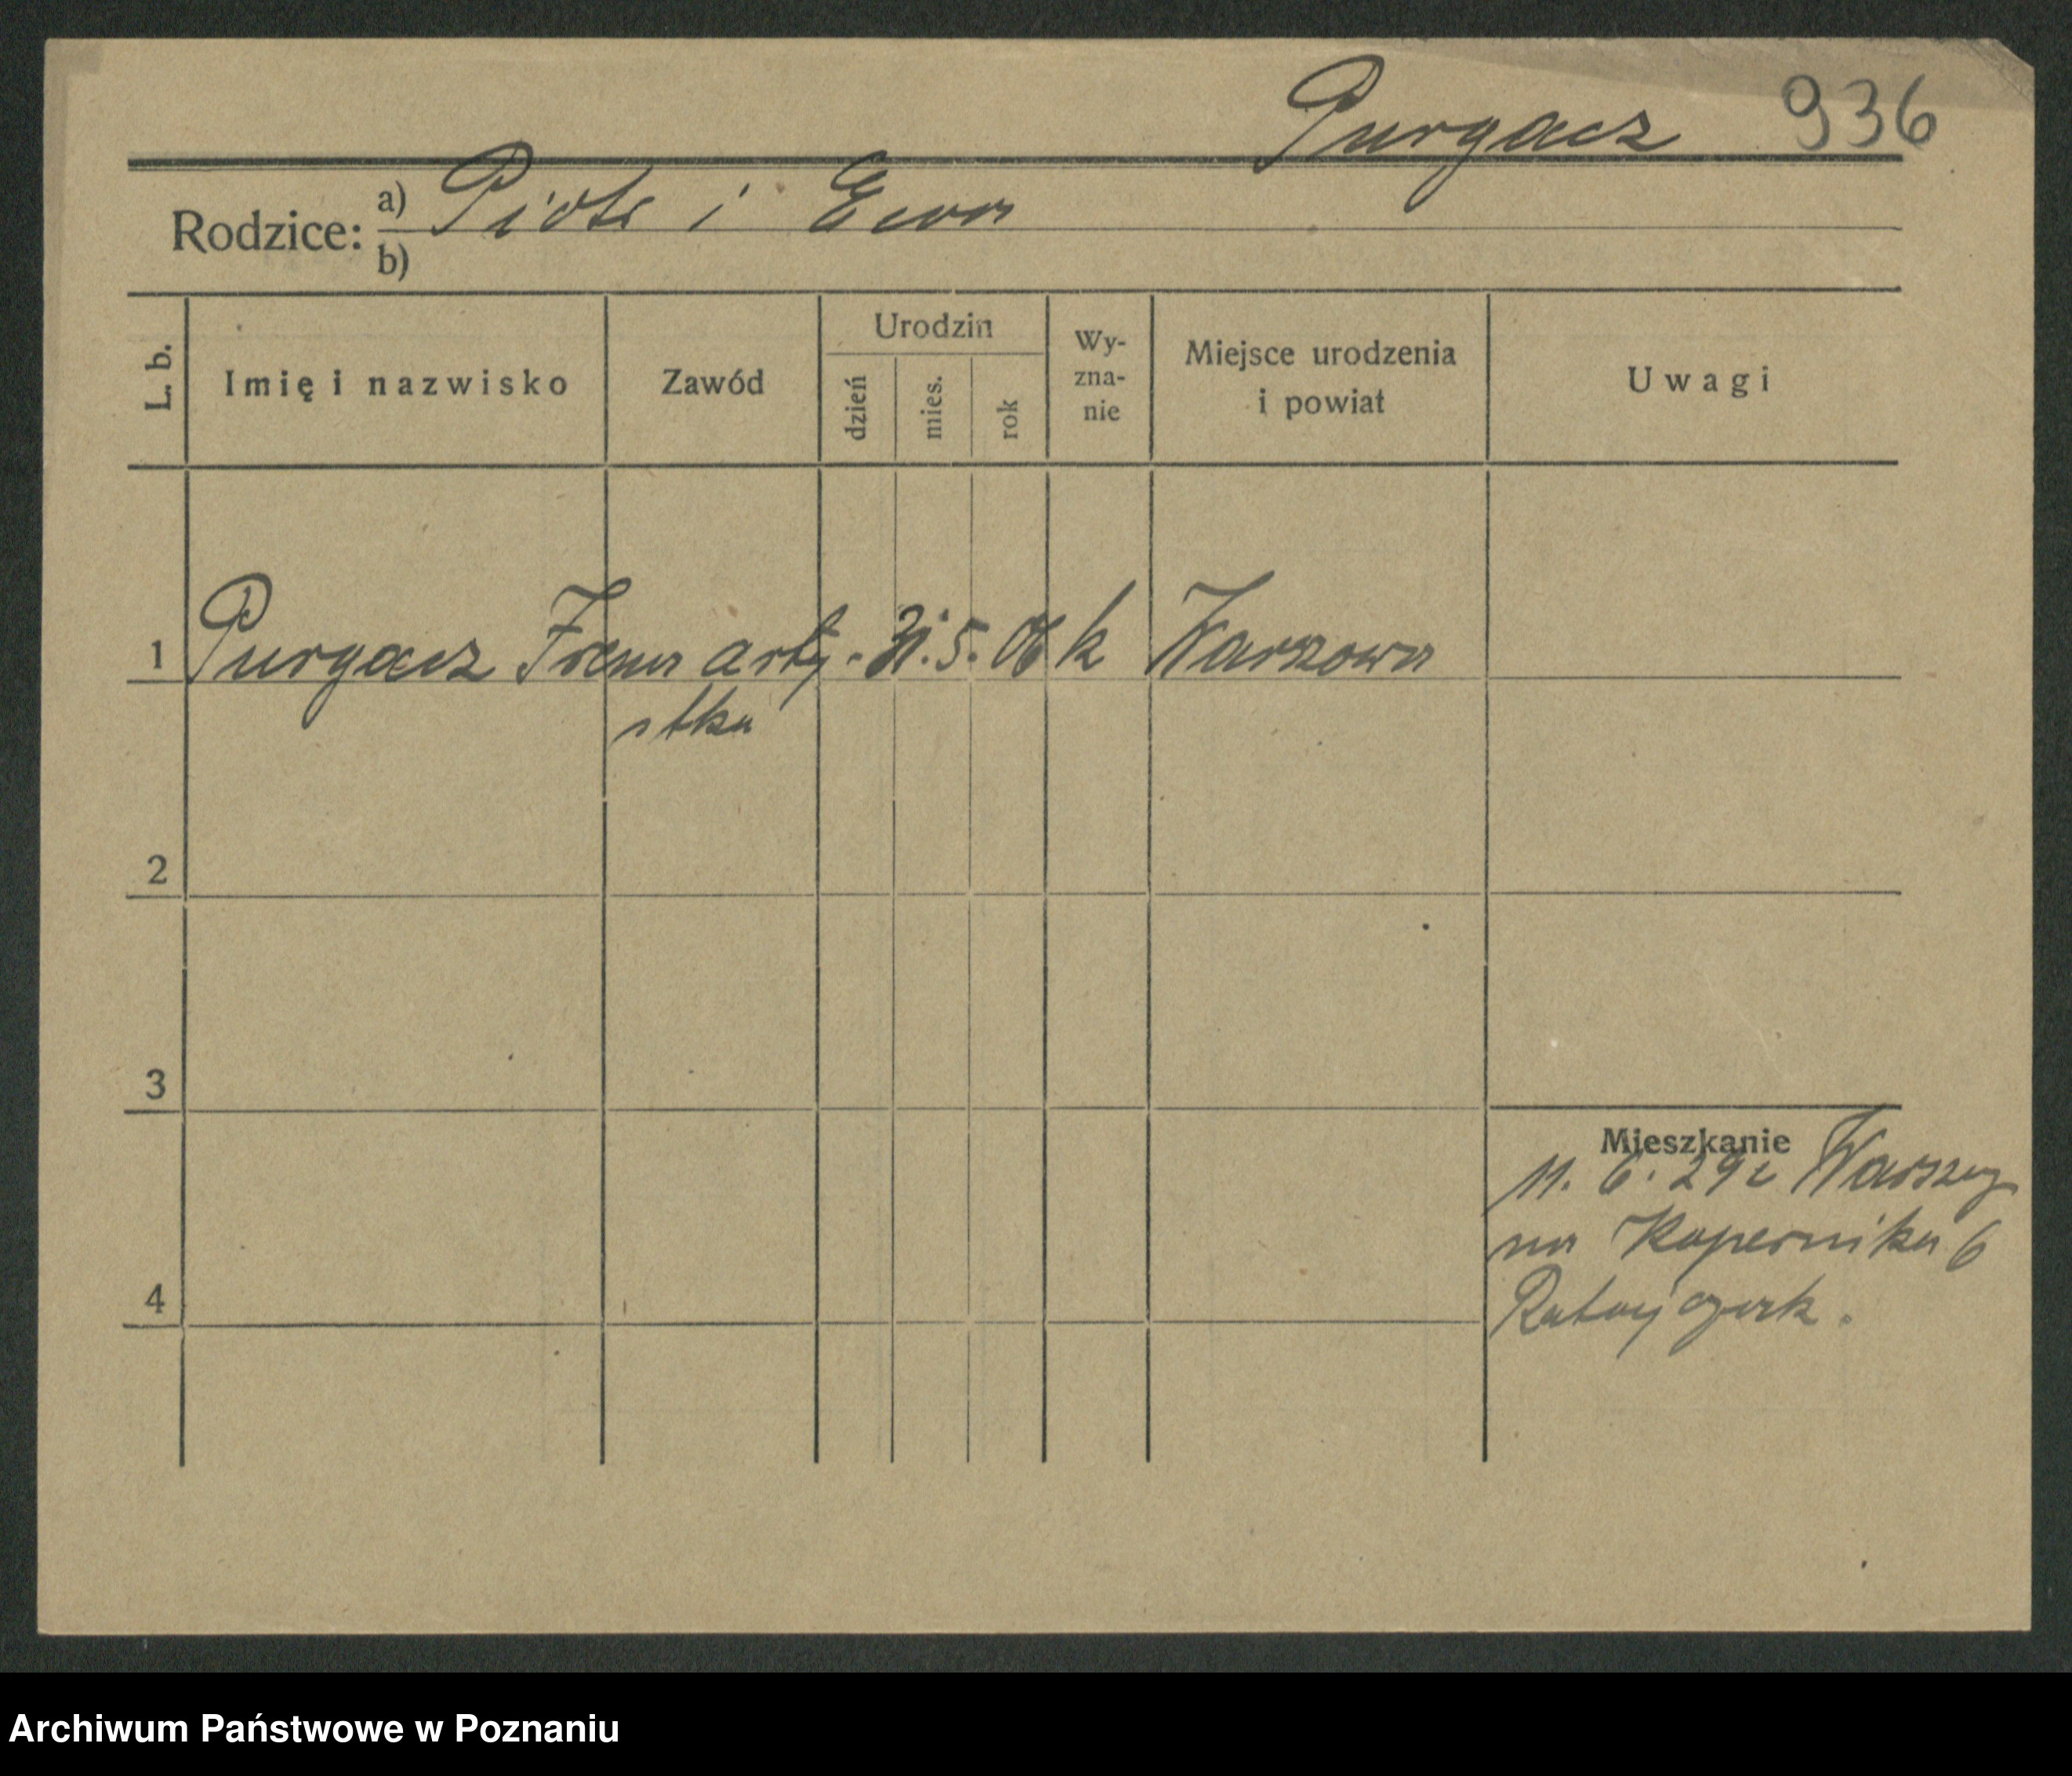 Purgacz 936
Rodzice: a) Piotr i Ewa
b)
L. b. Imię i nazwisko Zawód Urodzin dzień mies. rok Wy-zna-nie Miejsce urodzenia i powiat Uwagi
1 Purgacz Irena arty- 31. 5. 06 k Warszawa
stka
2
3
Mieszkanie
11. 6. 29 z Warszawy
na Kopernika 6
4 Ratajczak.
Archiwum Państwowe w Poznaniu